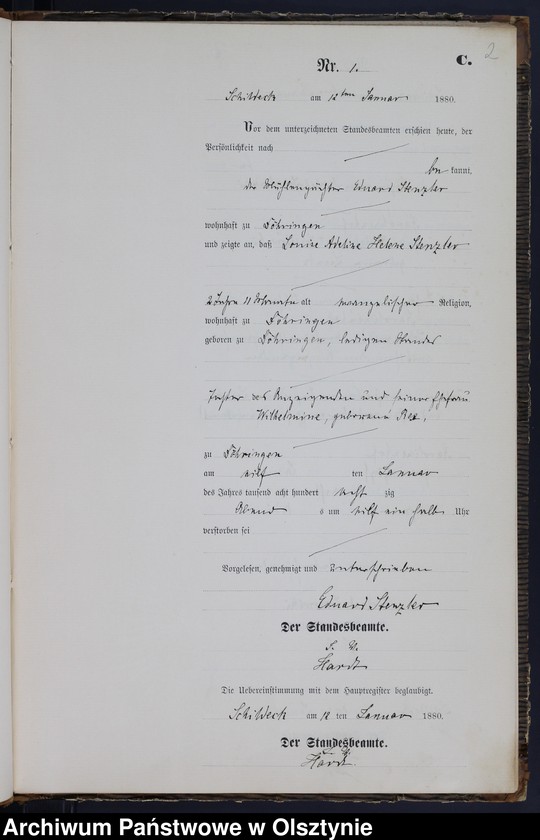 2
C.
Nr. 1.
Schildeck am 12ten Januar 1880.
Vor dem unterzeichneten Standesbeamten erschien heute, der
Persönlichkeit nach
be kannt,
der Mühlenpächter Eduard Stenzler
wohnhaft zu Döhringen
und zeigte an, daß Louise Adeline Helene Stenzler
2 Jahre 11 Monate alt evangelischer Religion,
wohnhaft zu Döhringen
geboren zu Döhringen, ledigen Standes
Tochter des Anzeigenden und seiner Ehefrau
Wilhelmine, geborene
zu Döhringen
am eilf ten Januar
des Jahres tausend acht hundert acht zig
Abend s um eilf ein halb Uhr
verstorben sei
Vorgelesen, genehmigt und unterschrieben
Eduard Stenzler
Der Standesbeamte.
Hardt
Die Uebereinstimmung mit dem Hauptregister beglaubigt.
Schildeck am 12 ten Januar 1880.
Der Standesbeamte.
Hardt.
Archiwum Państwowe w Olsztynie